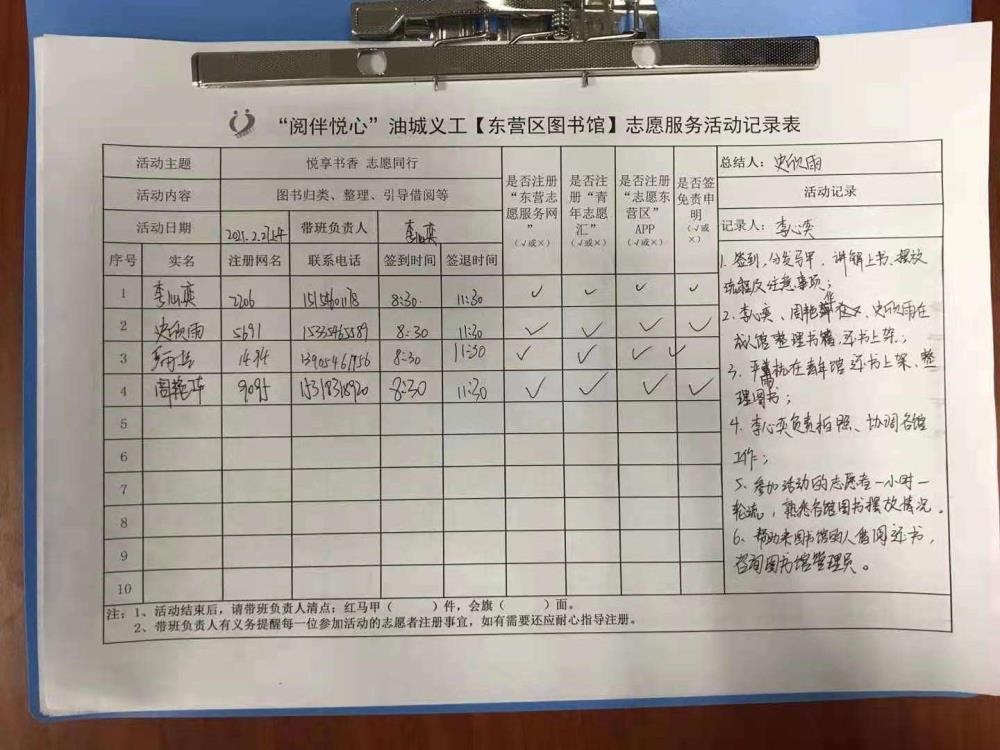 “阅伴悦心”油城义工【东营区图书馆】志愿服务活动记录表
活动主题 悦享书香 志愿同行
活动内容 图书归类、整理、引导借阅等
活动日期 带班负责人 李心奕
是否注册“东营志愿服务网”（√或×）
是否注册“青年志愿汇”（√或×）
是否注册“志愿东营区”APP（√或×）
是否签免责申明（√或×）
总结人：史欣雨
活动记录
记录人：李心奕
序号 实名 注册网名 联系电话 签到时间 签退时间
1 李心奕 2206 8:30 11:30 √ √ √ √
2 史欣雨 5691 15335465589 8:30 11:30 √ √ √ √
3 1494 13905461956 8:30 11:30 √ √ √ √
4 周艳萍 9095 15318318920 8:30 11:30 √ √ √ √
5
6
7
8
9
10
1. 签到，分发马甲、讲解上书、摆放
流程及注意事项；
2、李心奕、周艳、史欣雨在
成人馆整理书籍、还书上架；
3、在青年馆还书上架、整
理图书；
4、李心奕负责拍照、协调各馆
工作；
5、参加活动的志愿者一小时一
轮流，熟悉各馆图书摆放情况。
6、帮助来图书馆的人借阅还书，
咨询图书馆管理员。
注：1、活动结束后，请带班负责人清点：红马甲（ ）件，会旗（ ）面。
2、带班负责人有义务提醒每一位参加活动的志愿者注册事宜，如有需要还应耐心指导注册。